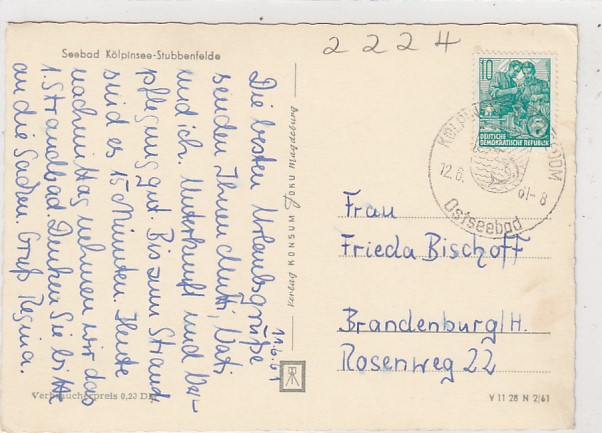 Seebad Kölpinsee-Stubbenfelde
2 2 2 4
11.6.61
Die besten Urlaubsgrüße
senden Ihnen Mutti, Vati
und ich. Unterkunft und Ver-
pflegung gut. Bis zum Strand
sind es 15 Minuten. Heute
nachmittag nehmen wir das
1. Strandbad. Denken Sie bitte
an die Sachen. Gruß Regina.
Verbraucherpreis 0,20 DM
Verlag KONSUM FOKU Magdeburg
10
DEUTSCHE
DEMOKRATISCHE REPUBLIK
12.6. 61-8
Ostseebad
Frau
Frieda Bischoff
Brandenburg/H.
Rosenweg 22
V 11 28 N 2/61